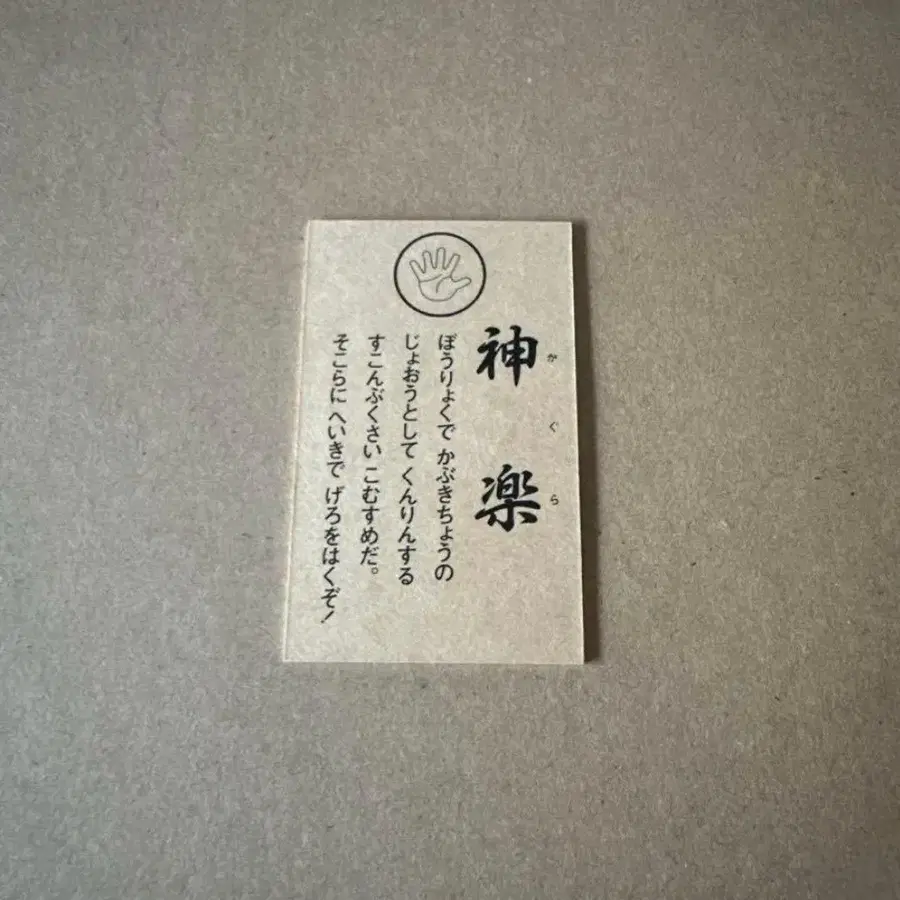 神楽
かぐら
ぼうりょくで かぶきちょうの
じょおうとして くんりんする
すこんぶくさい こむすめだ。
そこらに へいきで げろをはくぞ!